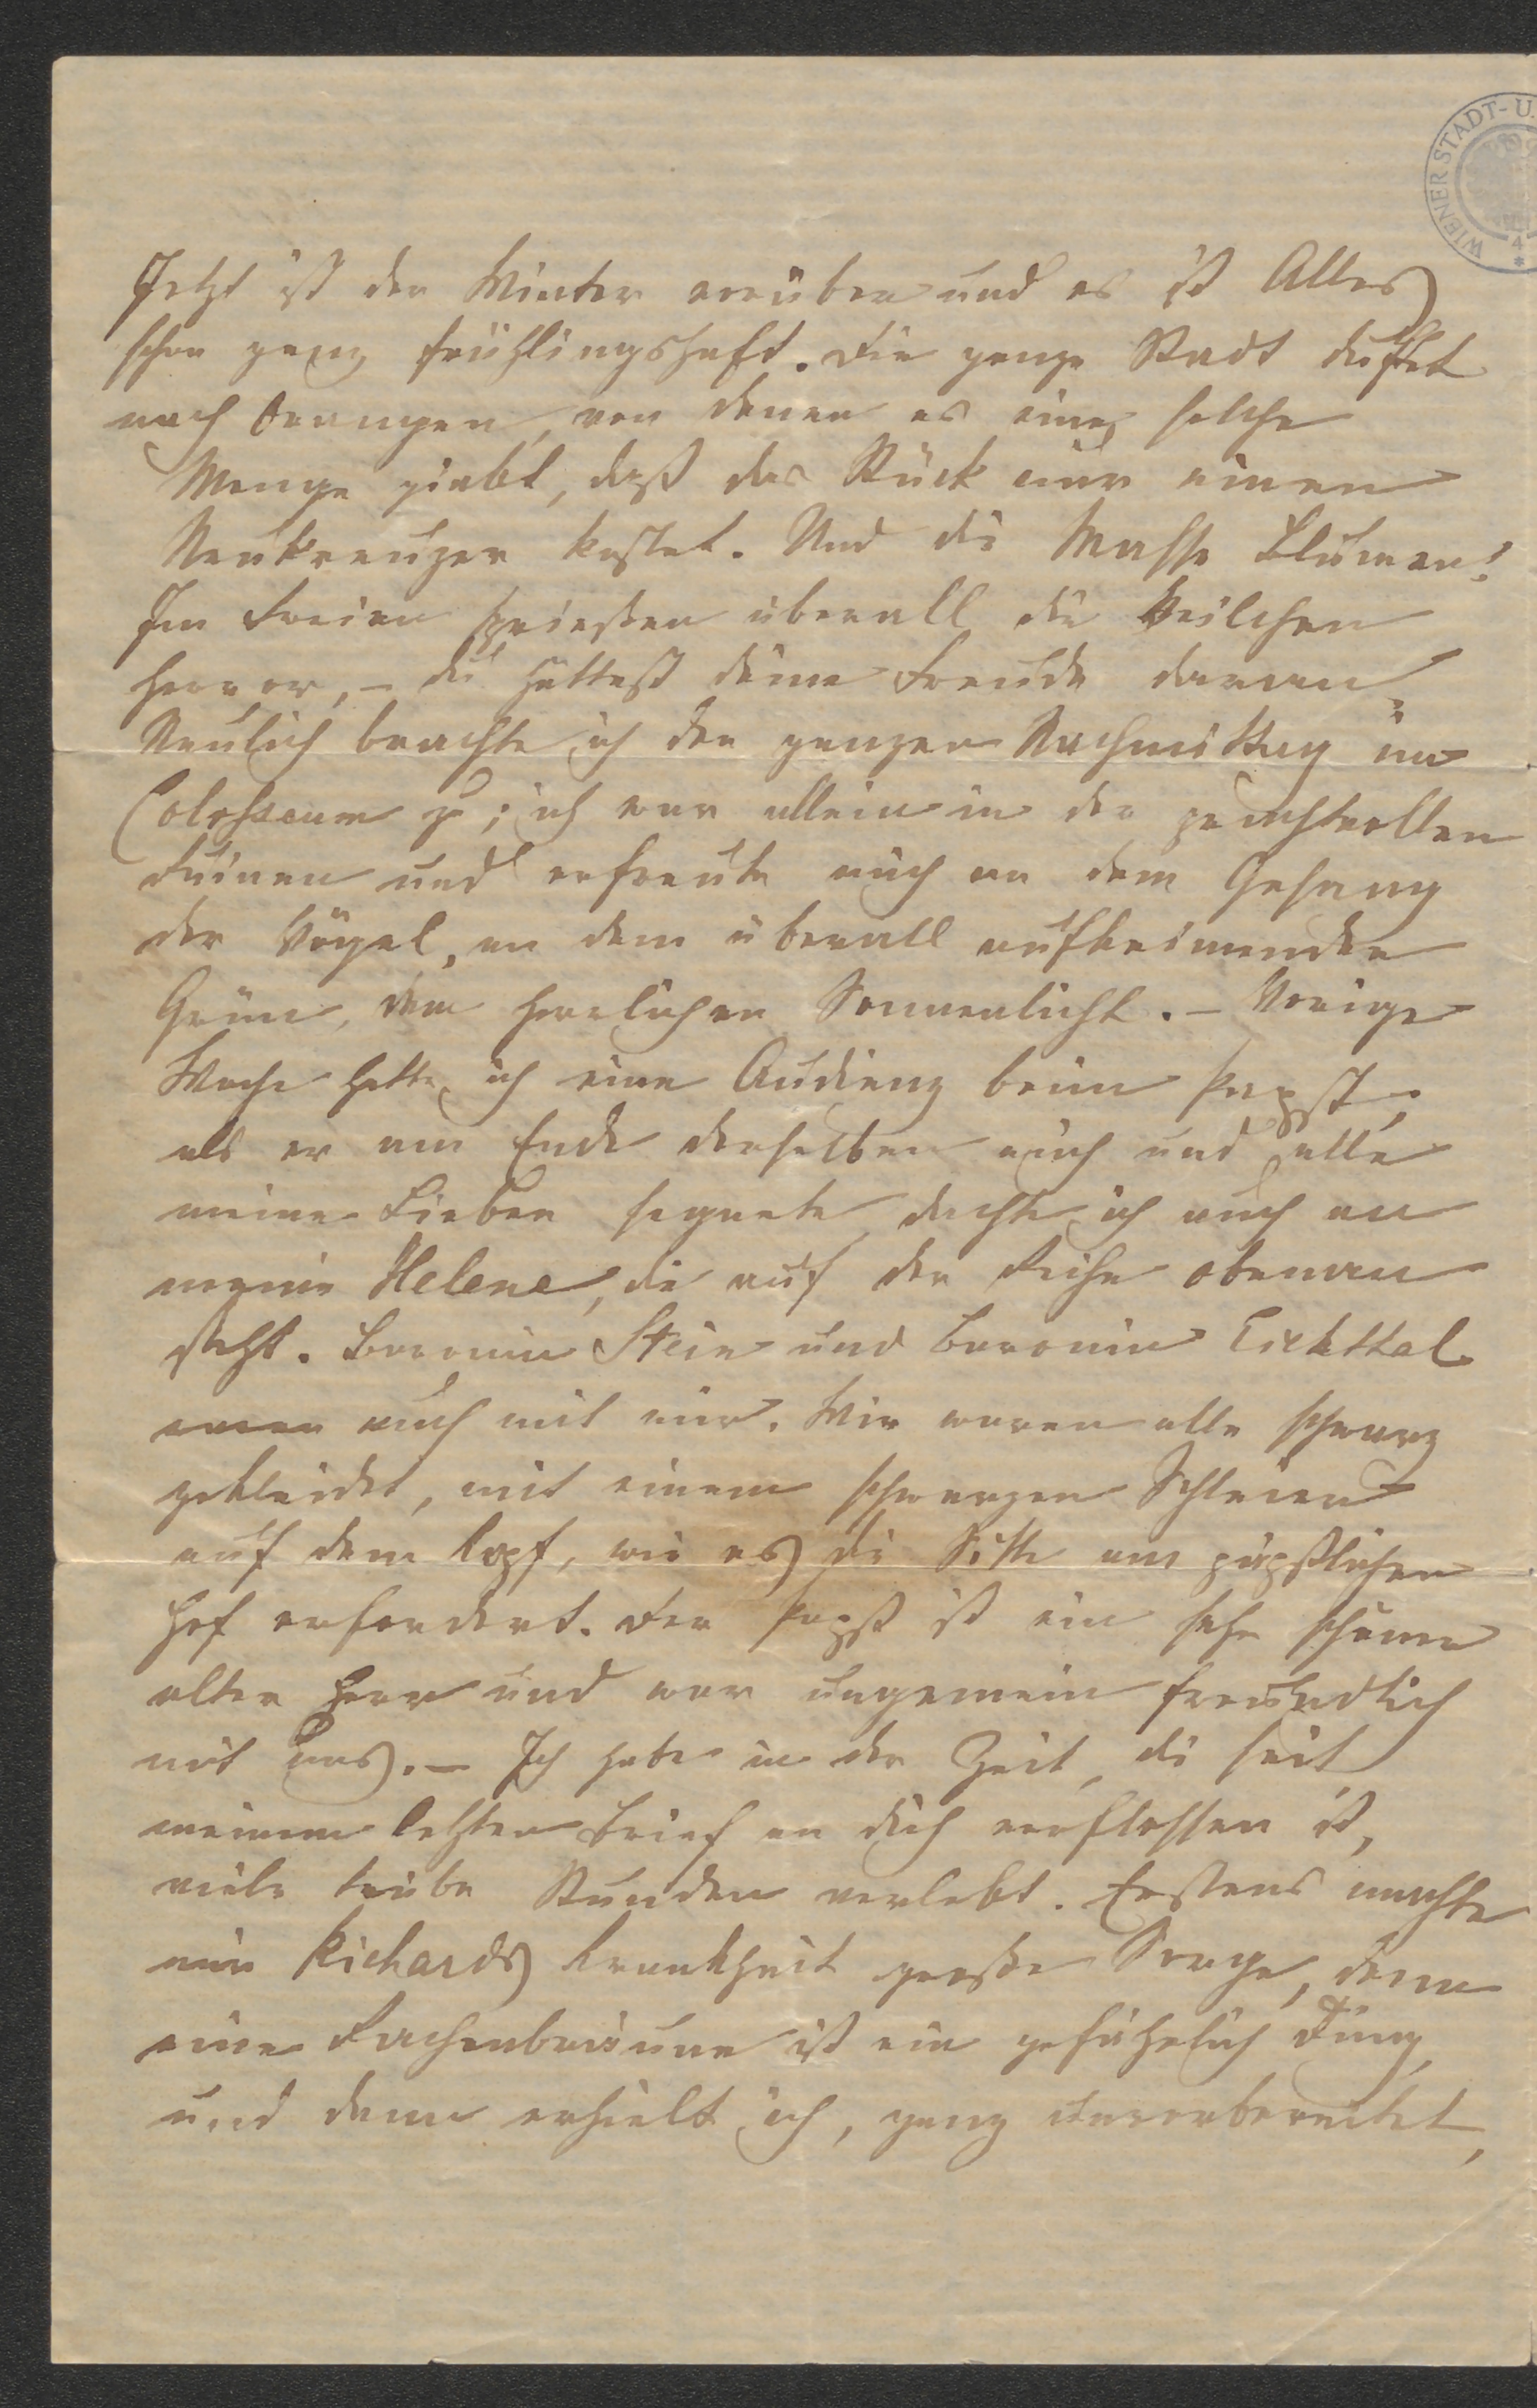 WIENER STADT- U.
4
Jetzt ist der Winter vorüber und es ist Alles
schon ganz frühlingshaft. Die ganze Stadt duftet
nach Orangen, von denen es eine solche
Menge giebt, daß das Stück nur einen
Neukreuzer kostet. Und die Masse Blumen!
Im Freien sprießen überall die Veilchen
hervor, – du hättest deine Freude daran.
Neulich brachte ich den ganzen Nachmittag im
Colosseum zu; ich war allein in den prachtvollen
Ruinen und erfreute mich an dem Gesang
der Vögel, an dem überall aufkeimenden
Grün, dem herrlichen Sonnenlicht. – Vorige
Woche hatte ich eine Audienz beim Papst;
als er am Ende derselben mich und alle
meine Lieben segnete, dachte ich auch an
meine Helene, die auf der Reihe obenan
steht. Baronin Stein und Baronin Eichthal
waren auch mit mir. Wir waren alle schwarz
gekleidet, mit einem schwarzen Schleier
auf dem Kopf, wie es die Sitte am päpstlichen
Hof erfordert. Der Papst ist ein sehr schöner
alter Herr und war ungemein freundlich
mit uns. – Ich habe in der Zeit, die seit
meinem letzten Brief an dich verflossen ist,
viele trübe Stunden verlebt. Erstens machte
mir Richards Krankheit große Sorge, denn
eine Rachenbräune ist ein gefährlich Ding,
und dann erhielt ich, ganz unvorbereitet,